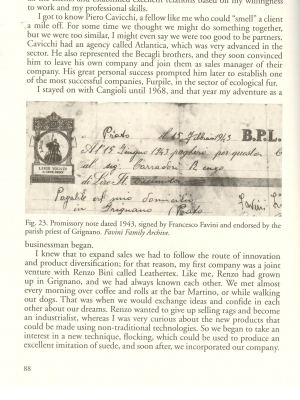 to work and my professional skills.
I got to know Piero Cavicchi, a fellow like me who could "smell" a client
a mile off. For some time we thought we might do something together,
but we were too similar, I might even say we were too good to be partners.
Cavicchi had an agency called Atlantica, which was very advanced in the
sector. He also represented the Becagli brothers, and they soon convinced
him to leave his own company and join them as sales manager of their
company. His great personal success prompted him later to establish one
of the most successful companies, Furpile, in the sector of ecological fur.
I stayed on with Cangioli until 1968, and that year my adventure as a
Prato 1943 B.P.L.
Al 15 Giugno 1943 pagherò per questa
al sig.
di Lire
Pagabile
in Grignano Prato
Fig. 23. Promissory note dated 1943, signed by Francesco Favini and endorsed by the
parish priest of Grignano. Favini Family Archive.
businessman began.
I knew that to expand sales we had to follow the route of innovation
and product diversification; for that reason, my first company was a joint
venture with Renzo Bini called Leathertex. Like me, Renzo had grown
up in Grignano, and we had always known each other. We met almost
every morning over coffee and rolls at the bar Martino, or while walking
our dogs. That was when we would exchange ideas and confide in each
other about our dreams. Renzo wanted to give up selling rags and become
an industrialist, whereas I was very curious about the new products that
could be made using non-traditional technologies. So we began to take an
interest in a new technique, flocking, which could be used to produce an
excellent imitation of suede, and soon after, we incorporated our company.
88